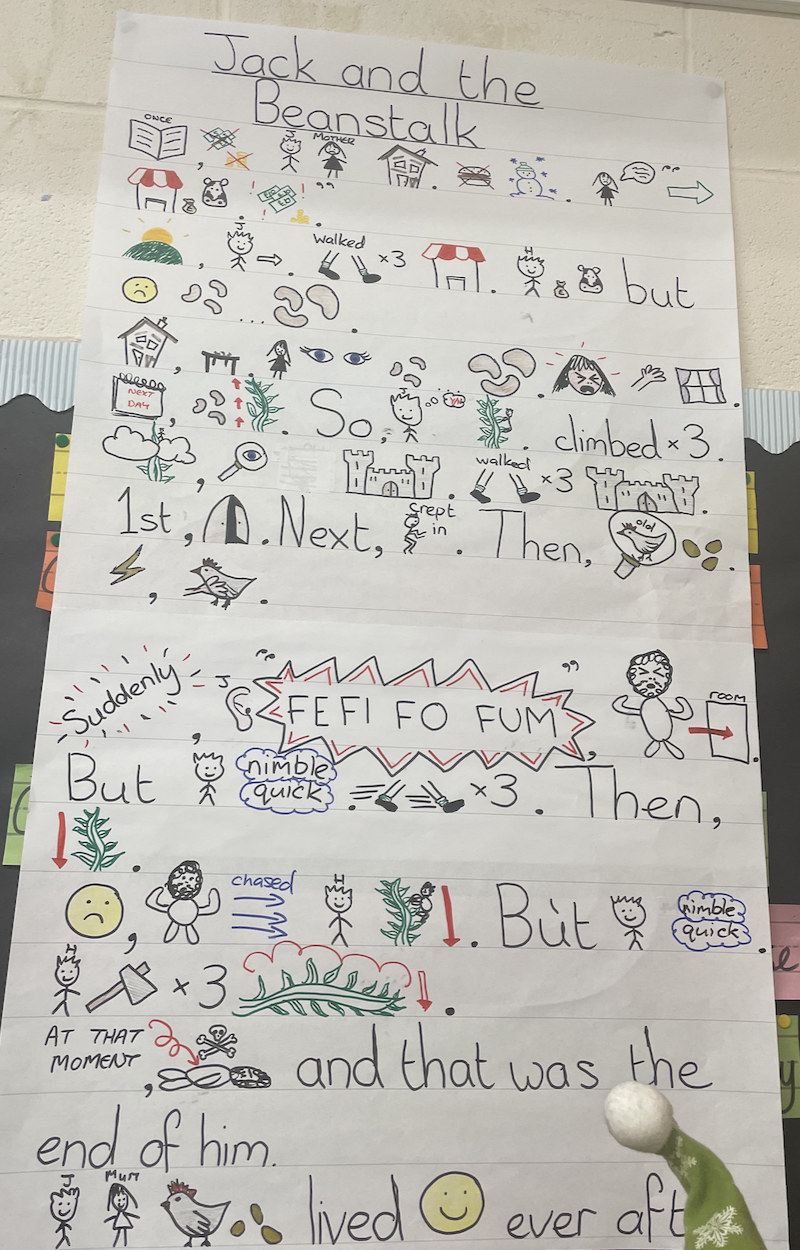 Jack and the
Beanstalk
ONCE , J MOTHER . . “
”
, J . walked ×3 . H but
... .
, . .
NEXT DAY , . So, . climbed ×3.
, . walked ×3 .
1st, . Next, crept in . Then, old .
, .
Suddenly , J “ FEFI FO FUM ” , room .
But nimble quick . ×3. Then,
.
, chased H . But nimble quick .
H ×3 .
AT THAT MOMENT , and that was the
end of him.
J Mum lived ever aft